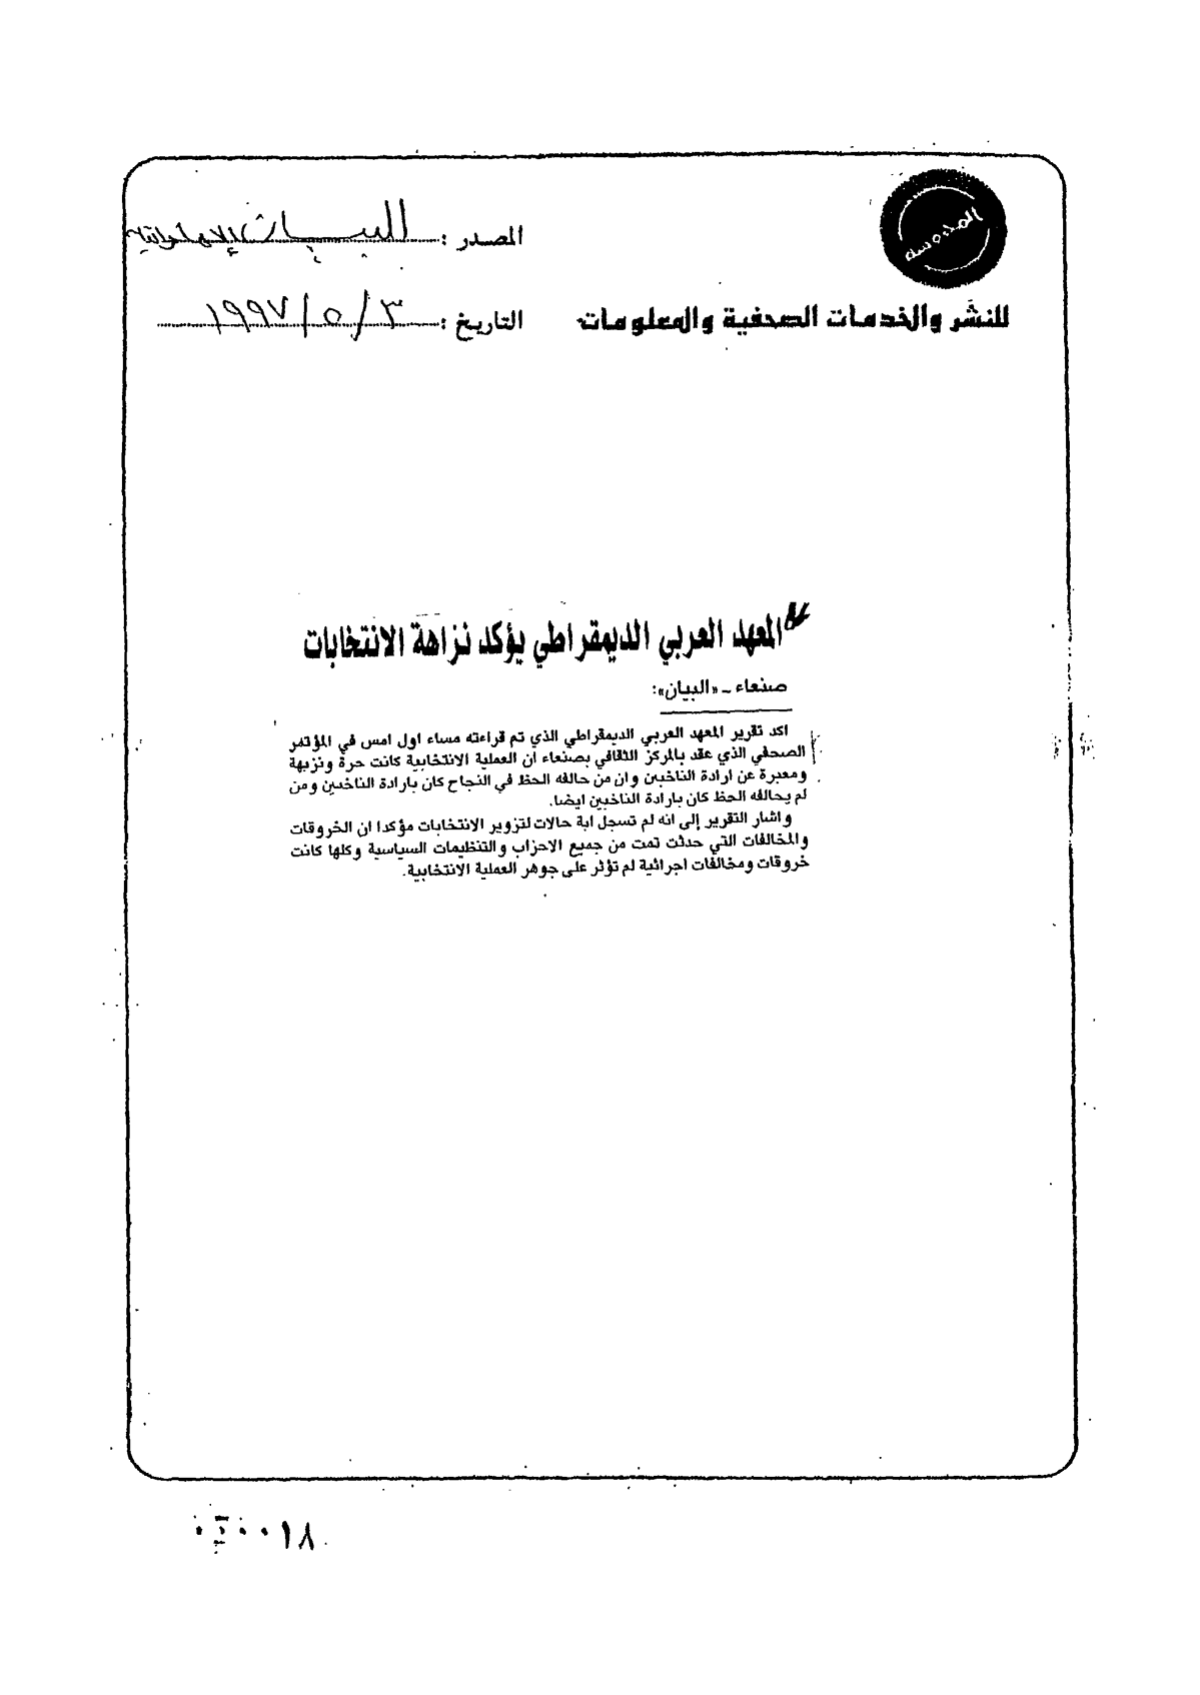 المصدر : البيان الإماراتية
للنشر والخدمات الصحفية والمعلومات
التاريخ : ٣ / ٥ / ١٩٩٧
المعهد العربي الديمقراطي يؤكد نزاهة الانتخابات
صنعاء ـ «البيان»:
اكد تقرير المعهد العربي الديمقراطي الذي تم قراءته مساء اول امس في المؤتمر
الصحفي الذي عقد بالمركز الثقافي بصنعاء ان العملية الانتخابية كانت حرة ونزيهة
ومعبرة عن ارادة الناخبين وان من حالفه الحظ في النجاح كان بارادة الناخبين ومن
لم يحالفه الحظ كان بارادة الناخبين ايضا.
واشار التقرير إلى انه لم تسجل اية حالات لتزوير الانتخابات مؤكدا ان الخروقات
والمخالفات التي حدثت تمت من جميع الاحزاب والتنظيمات السياسية وكلها كانت
خروقات ومخالفات اجرائية لم تؤثر على جوهر العملية الانتخابية.